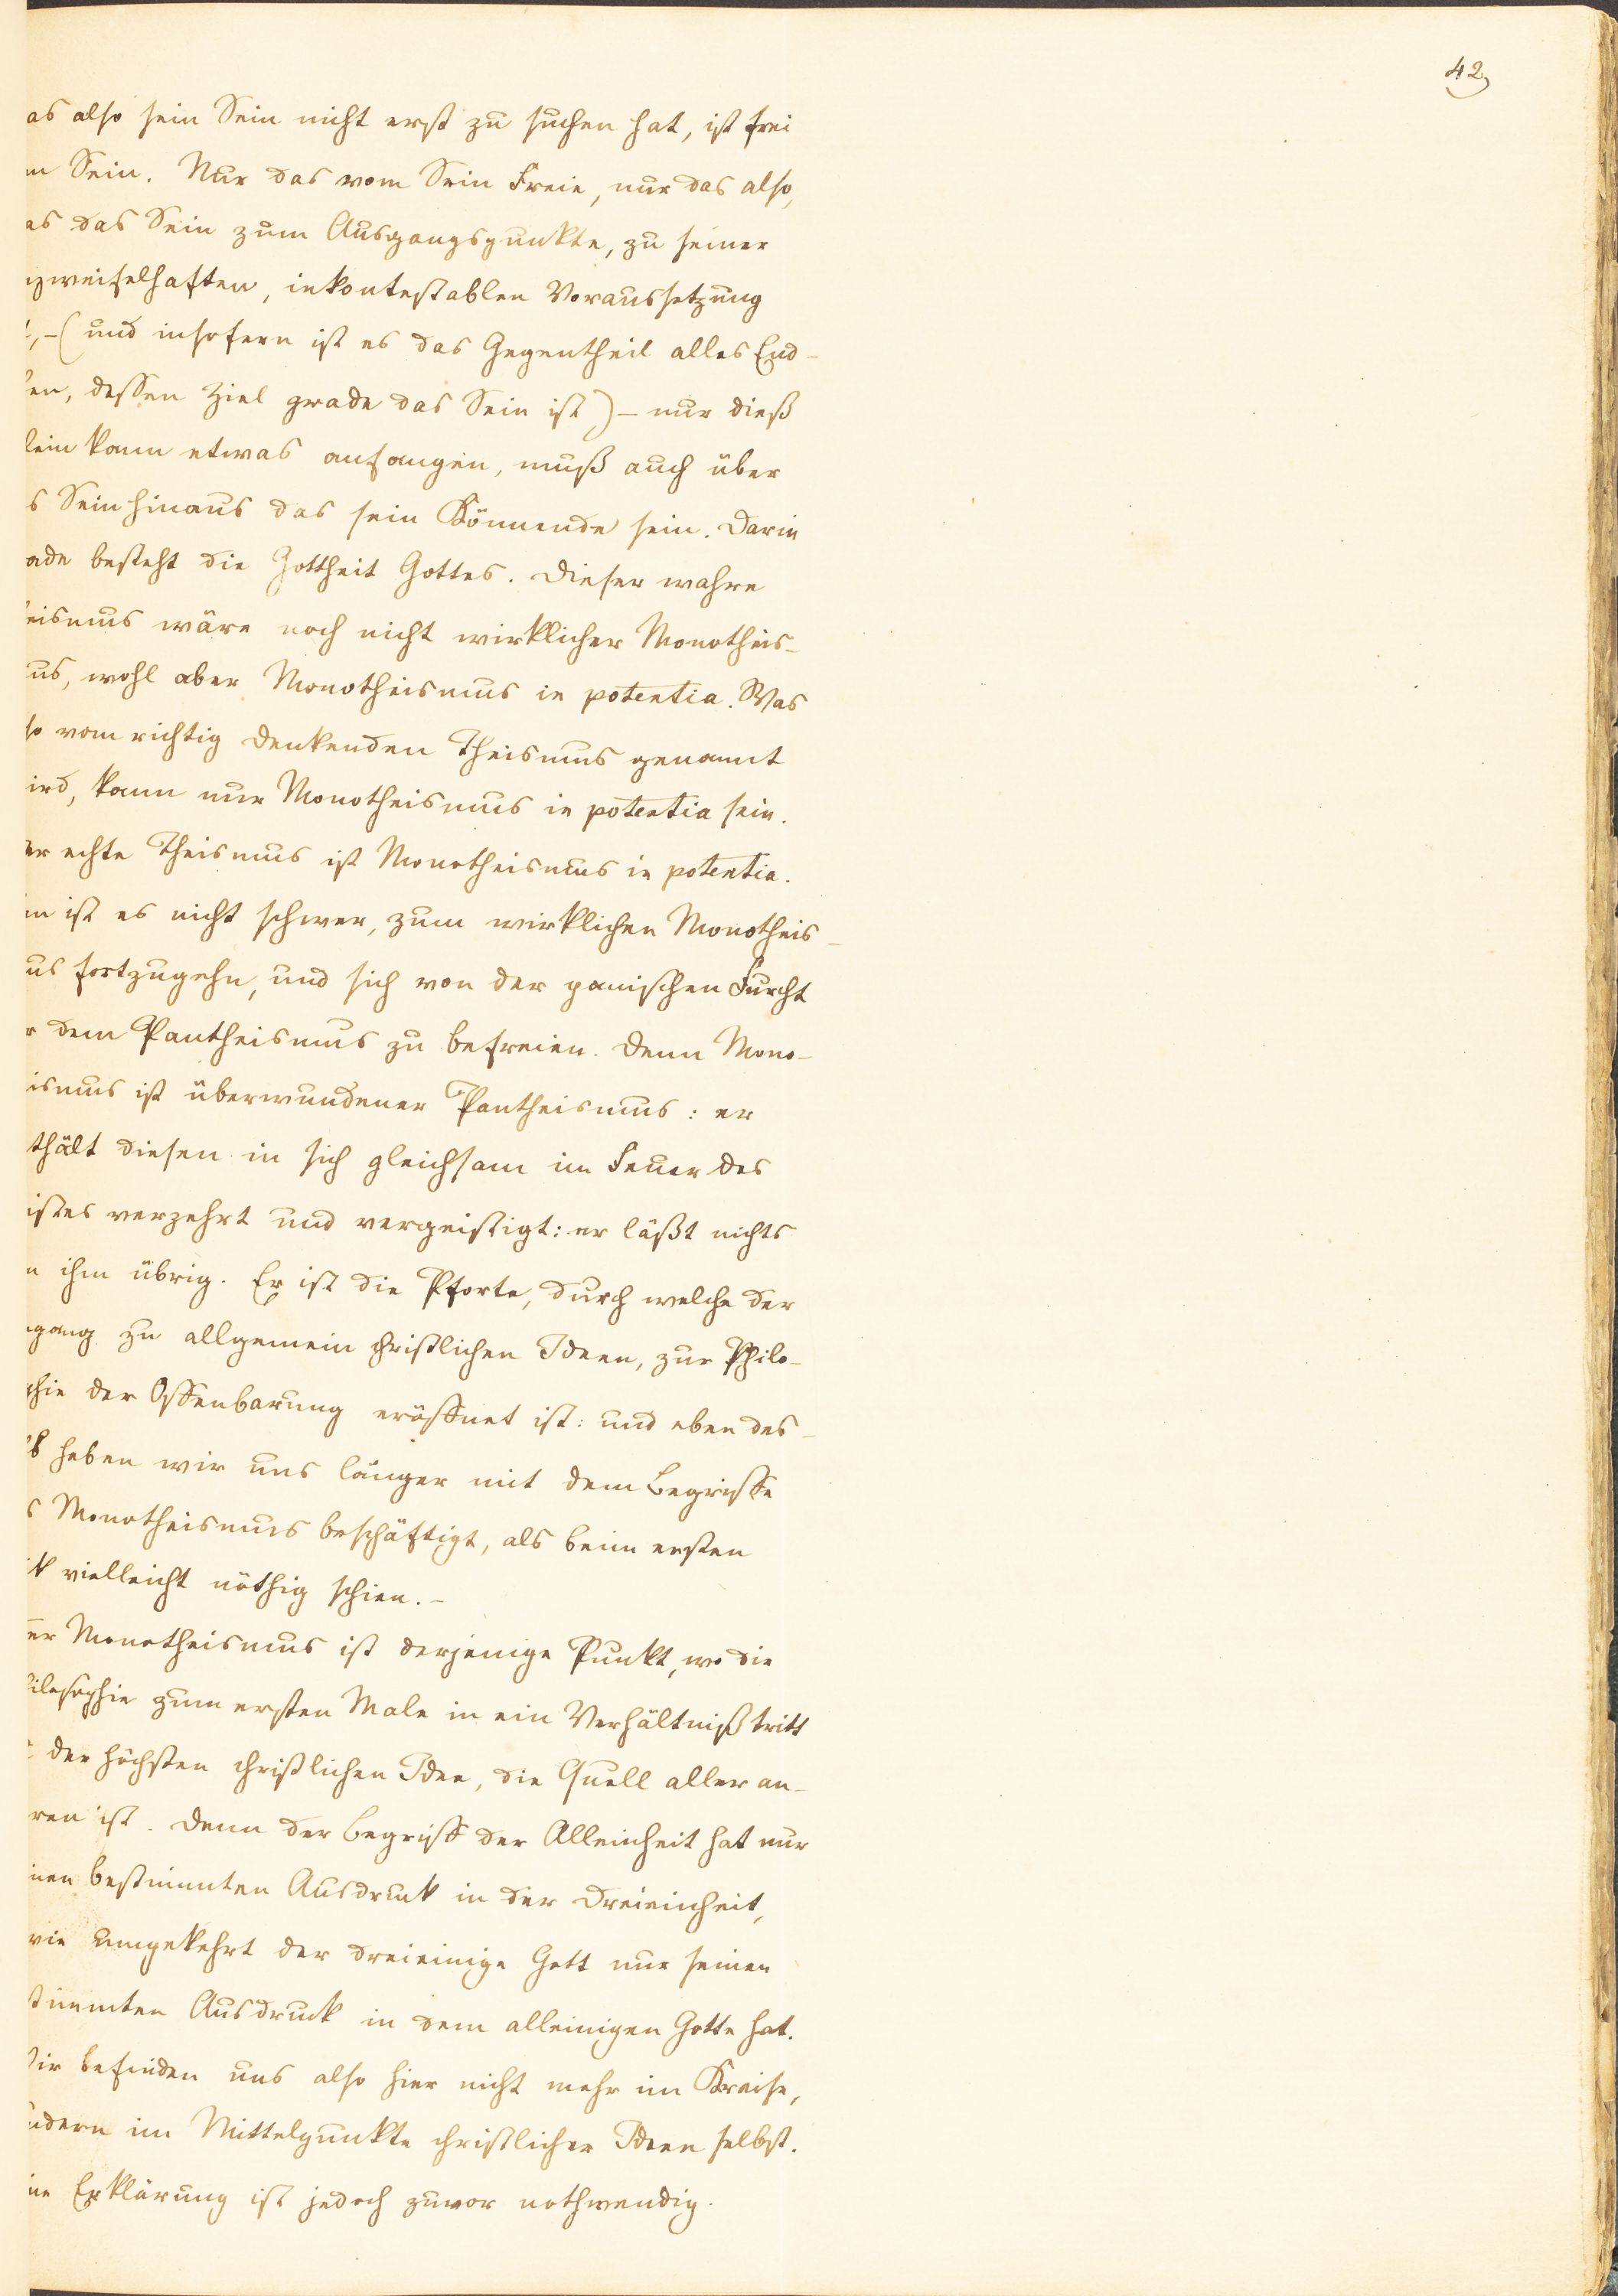 42
as also sein Sein nicht erst zu suchen hat, ist frei
m Sein. Nur das vom Sein Freie, nur das also,
as das Sein zum Ausgangspunkte, zu seiner
zweifelhaften, inkontestablen Voraussetzung
t, – (und insofern ist es das Gegentheil alles End-
en, dessen Ziel grade das Sein ist) – nur dieß
lein kann etwas anfangen, muß auch über
s Sein hinaus das sein Könnende sein. Darin
ade besteht die Gottheit Gottes. Dieser wahre
eismus wäre noch nicht wirklicher Monotheis-
us, wohl aber Monotheismus in potentia. Was
so vom richtig denkenden Theismus genannt
ird, kann nur Monotheismus in potentia sein.
er echte Theismus ist Monotheismus in potentia.
n ist es nicht schwer, zum wirklichen Monotheis-
us fortzugehn, und sich von der panischen Furcht
r dem Pantheismus zu befreien. Denn Mono-
ismus ist überwundener Pantheismus: er
thält diesen in sich gleichsam im Feuer des
istes verzehrt und vergeistigt: er läßt nichts
n ihm übrig. Er ist die Pforte, durch welche der
gang zu allgemein christlichen Ideen, zur Philo-
phie der Offenbarung eröffnet ist: und eben des-
lb haben wir uns länger mit dem Begriffe
s Monotheismus beschäftigt, als beim ersten
k vielleicht nöthig schien. –
er Monotheismus ist derjenige Punkt, wo die
ilosophie zum ersten Male in ein Verhältniß tritt
t der höchsten christlichen Idee, die Quell aller an-
ren ist. Denn der Begriff der Alleinheit hat nur
inen bestimmten Ausdruck in der Dreieinheit,
wie umgekehrt der dreieinige Gott nur seinen
stimmten Ausdruck in dem alleinigen Gotte hat.
ir befinden uns also hier nicht mehr im Kreise,
ndern im Mittelpunkte christlicher Ideen selbst.
ne Erklärung ist jedoch zuvor nothwendig.